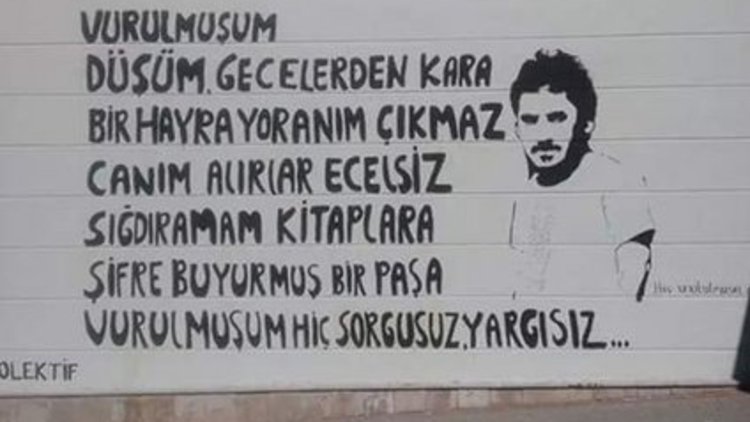 VURULMUŞUM
DÜŞÜM, GECELERDEN KARA
BİR HAYRA YORANIM ÇIKMAZ
CANIM ALIRLAR ECELSİZ
SIĞDIRAMAM KİTAPLARA
ŞİFRE BUYURMUŞ BİR PAŞA
VURULMUŞUM HİÇ SORGUSUZ, YARGISIZ...
OLEKTİF